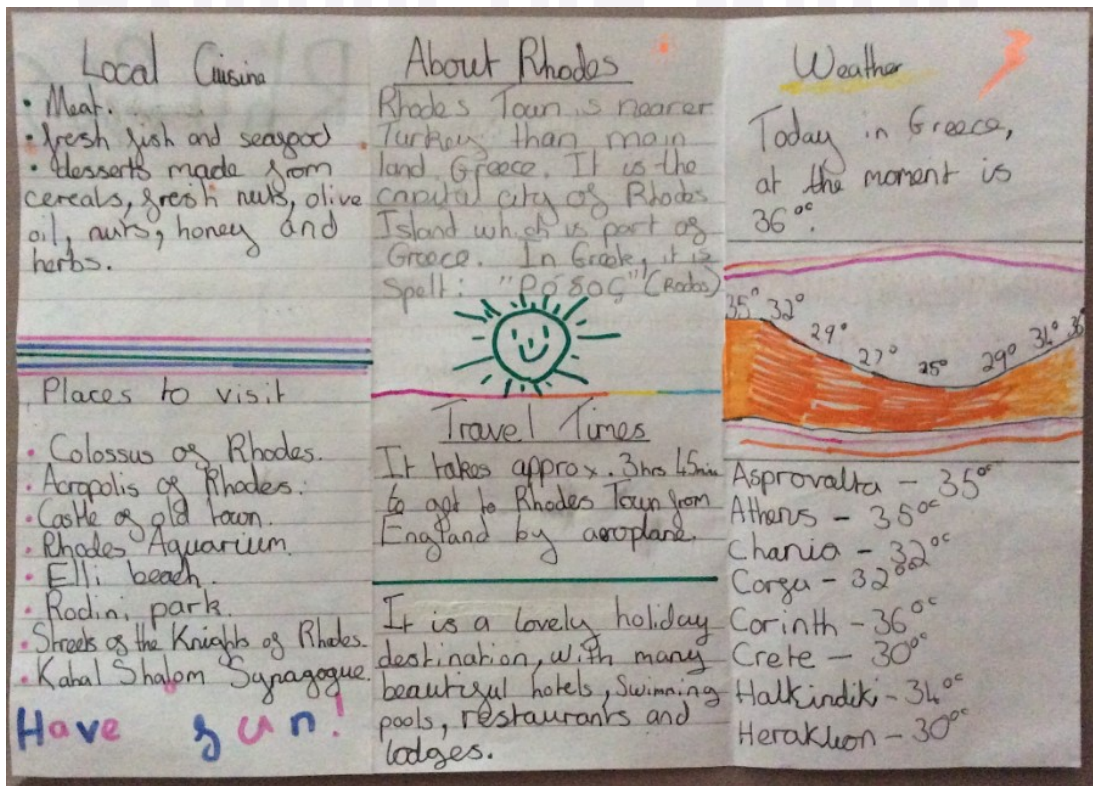 Local Cuisine
• Meat.
• fresh fish and seafood
• desserts made from
cereals, fresh nuts, olive
oil, nuts, honey and
herbs.
Places to visit
• Colossus of Rhodes.
• Acropolis of Rhodes.
• Castle of old town.
• Rhodes Aquarium.
• Elli beach.
• Rodini park.
• Streets of the Knights of Rhodes.
• Kahal Shalom Synagogue.
Have fun!
About Rhodes
Rhodes Town is nearer
Turkey than main
land Greece. It is the
capital city of Rhodes
Island which is part of
Greece. In Greek, it is
Spelt: "Ρόδος" (Rodos)
Travel Times
It takes approx. 3hrs 45min
to get to Rhodes Town from
England by aeroplane.
It is a lovely holiday
destination, with many
beautiful hotels, Swimming
pools, restaurants and
lodges.
Weather
Today in Greece,
at the moment is
36°c.
35° 32° 29° 27° 25° 29° 34° 36°
Asprovalta – 35°c
Athens – 35°c
Chania – 32°c
Corfu – 32°c
Corinth – 36°c
Crete – 30°
Halkindiki – 34°c
Heraklion – 30°c